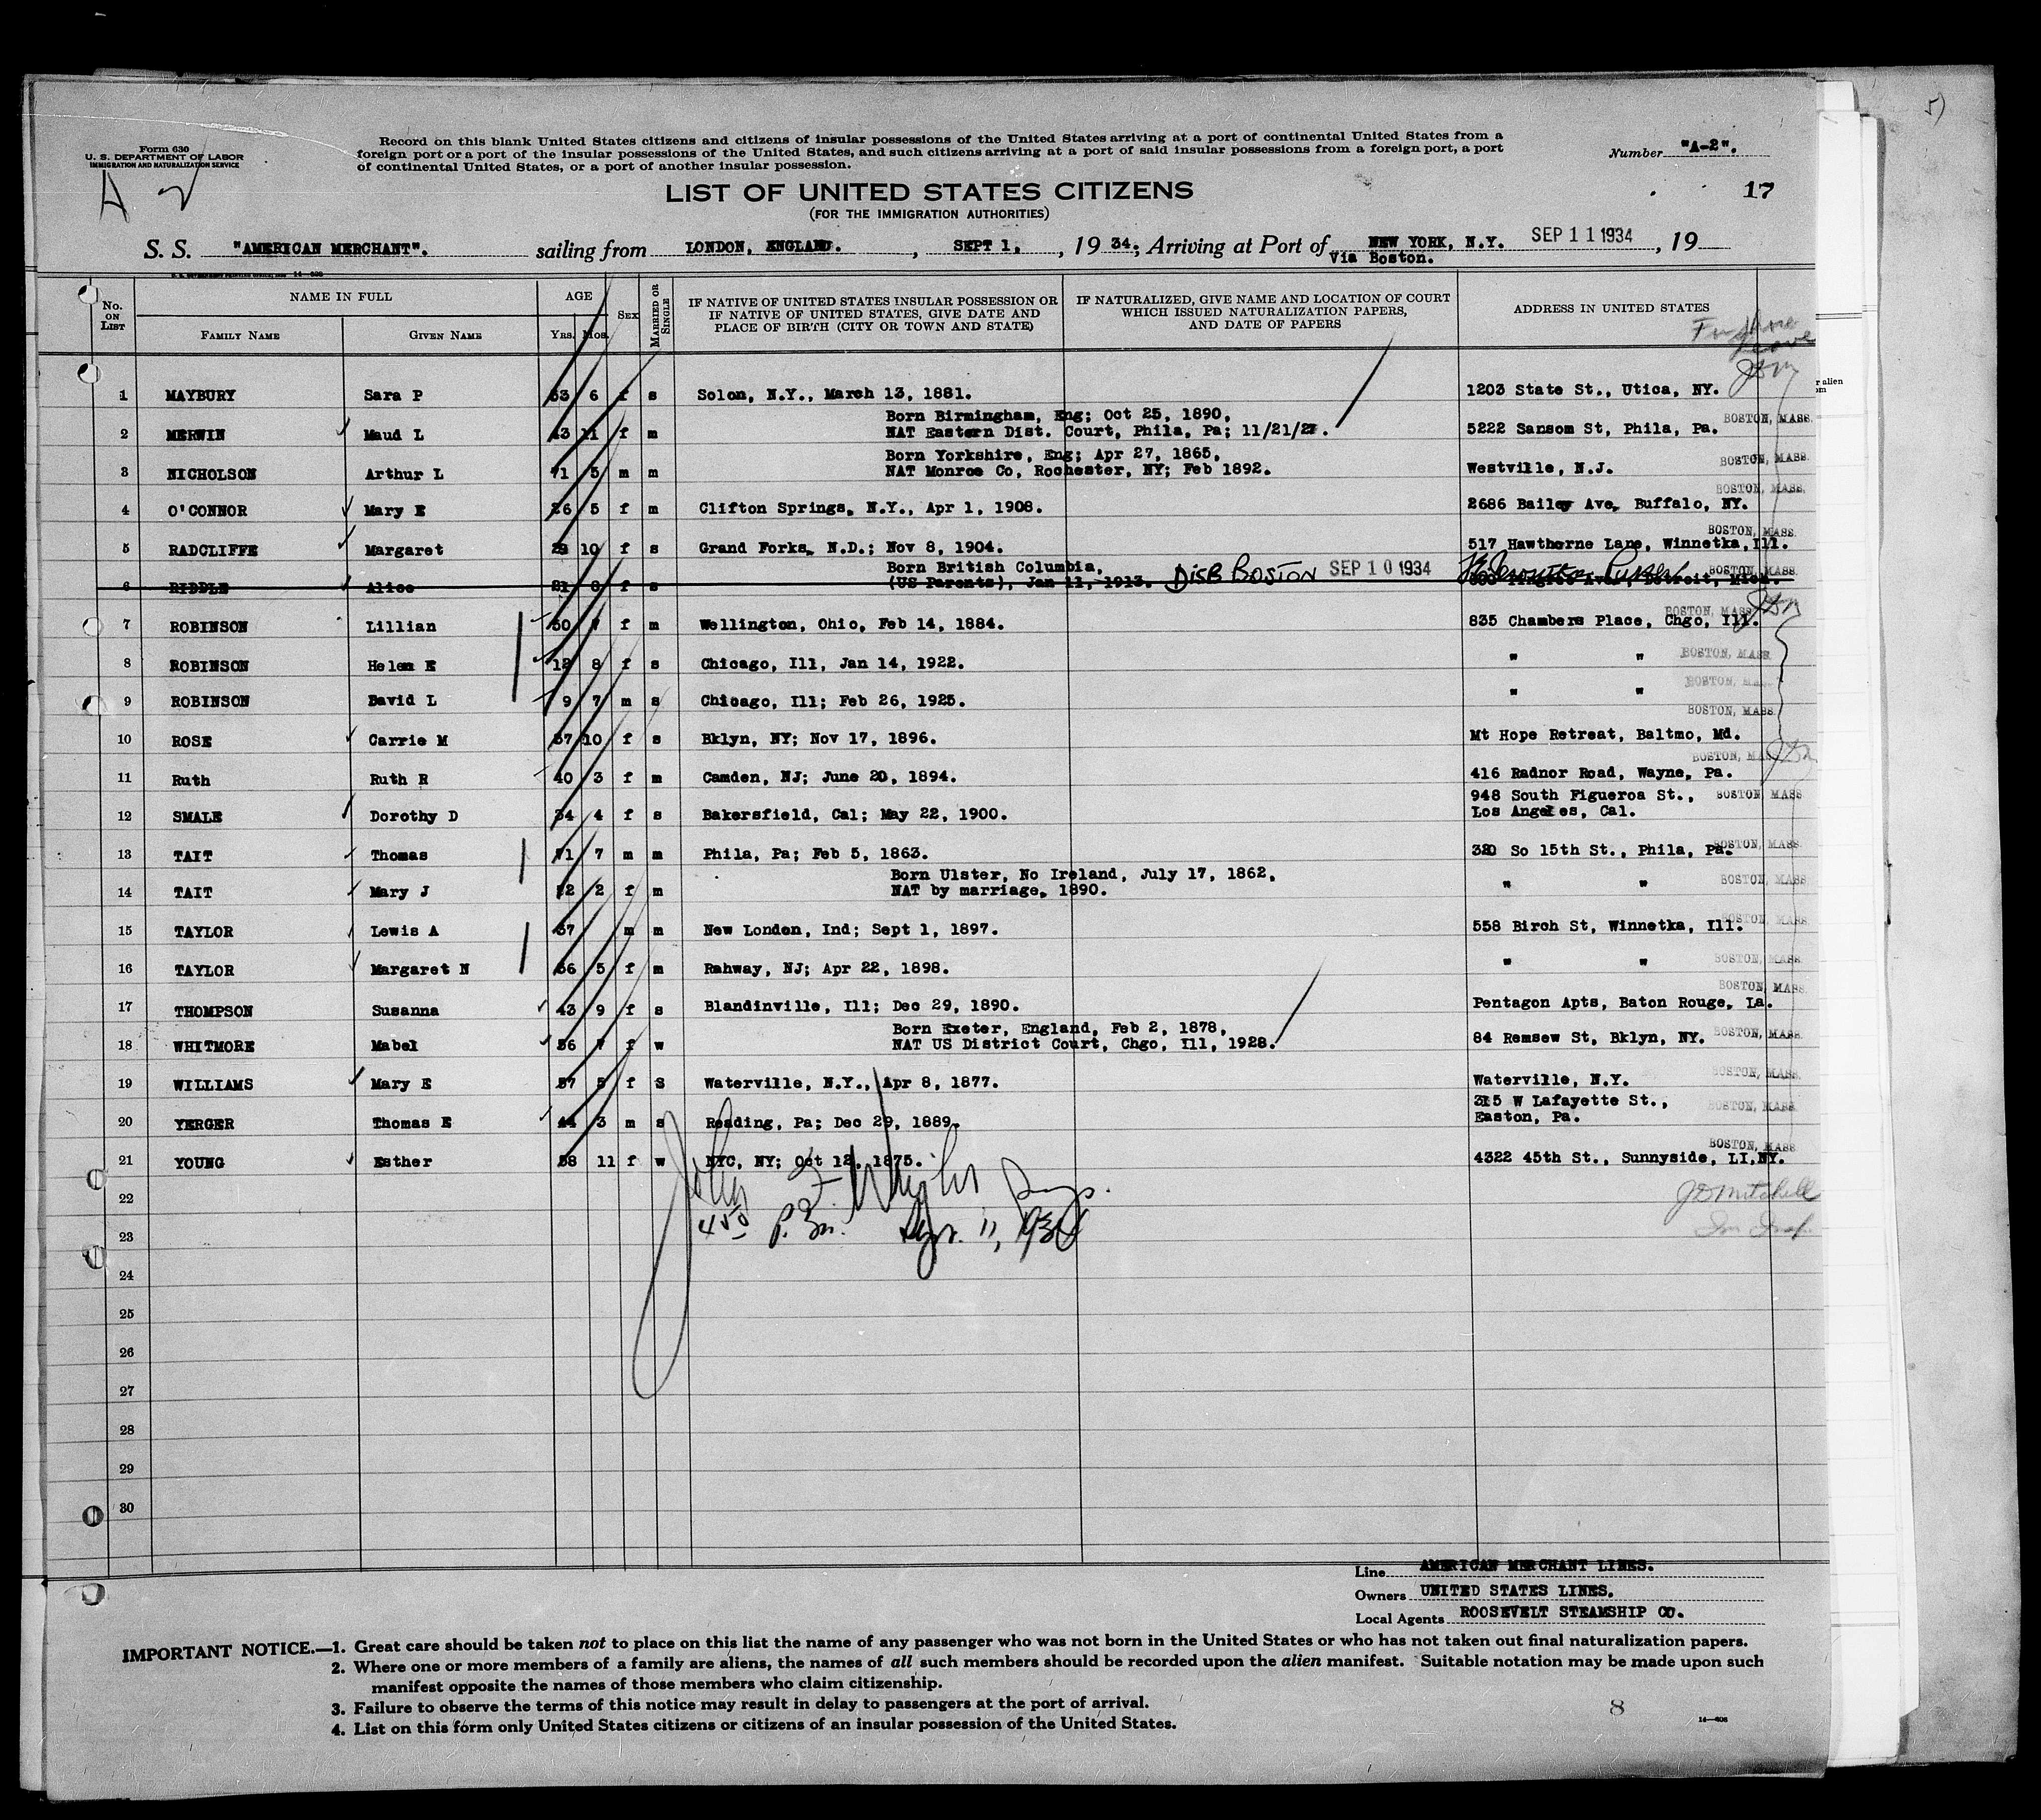 5)
Form 630
U. S. DEPARTMENT OF LABOR
IMMIGRATION AND NATURALIZATION SERVICE
Record on this blank United States citizens and citizens of insular possessions of the United States arriving at a port of continental United States from a
foreign port or a port of the insular possessions of the United States, and such citizens arriving at a port of said insular possessions from a foreign port, a port
of continental United States, or a port of another insular possession.
Number "A-2".
A
17
LIST OF UNITED STATES CITIZENS
(FOR THE IMMIGRATION AUTHORITIES)
S. S. "AMERICAN MERCHANT". sailing from LONDON, ENGLAND. , SEPT 1, , 19 34; Arriving at Port of NEW YORK, N.Y. SEP 11 1934 , 19
Via Boston.
14—608
No. ON LIST NAME IN FULL AGE SEX MARRIED OR SINGLE IF NATIVE OF UNITED STATES INSULAR POSSESSION OR IF NATIVE OF UNITED STATES, GIVE DATE AND PLACE OF BIRTH (CITY OR TOWN AND STATE) IF NATURALIZED, GIVE NAME AND LOCATION OF COURT WHICH ISSUED NATURALIZATION PAPERS, AND DATE OF PAPERS ADDRESS IN UNITED STATES
FAMILY NAME GIVEN NAME YRS. MOS.
1 MAYBURY Sara P 53 6 f s Solon, N.Y., March 13, 1881. 1203 State St., Utica, NY.
Born Birmingham, Eng; Oct 25, 1890, BOSTON, MASS.
2 MERWIN Maud L 43 11 f m NAT Eastern Dist. Court, Phila, Pa; 11/21/21. 5222 Sansom St, Phila, Pa.
Born Yorkshire, Eng; Apr 27, 1865, BOSTON, MASS.
3 NICHOLSON Arthur L 71 5 m m NAT Monroe Co, Rochester, NY; Feb 1892. Westville, N.J.
BOSTON, MASS.
4 O'CONNOR Mary E 26 5 f m Clifton Springs, N.Y., Apr 1, 1908. 2686 Bailey Ave, Buffalo, NY.
BOSTON, MASS.
5 RADCLIFFE Margaret 29 10 f s Grand Forks, N.D.; Nov 8, 1904. 517 Hawthorne Lane, Winnetka, Ill.
Born British Columbia, BOSTON, MASS.
6 RIDDLE Alice 21 8 f s (US Parents), Jan 11, 1913. DISB BOSTON SEP 10 1934 Detroit, Mich.
BOSTON, MASS.
7 ROBINSON Lillian 50 7 f m Wellington, Ohio, Feb 14, 1884. 835 Chambers Place, Chgo, Ill.
8 ROBINSON Helen E 12 8 f s Chicago, Ill, Jan 14, 1922. " " BOSTON, MASS.
9 ROBINSON David L 9 7 m s Chicago, Ill; Feb 26, 1925. " " BOSTON, MASS.
BOSTON, MASS.
10 ROSE Carrie M 37 10 f s Bklyn, NY; Nov 17, 1896. Mt Hope Retreat, Baltmo, Md.
BOSTON, MASS.
11 Ruth Ruth R 40 3 f m Camden, NJ; June 20, 1894. 416 Radnor Road, Wayne, Pa.
948 South Figueroa St., BOSTON, MASS.
12 SMALE Dorothy D 34 4 f s Bakersfield, Cal; May 22, 1900. Los Angeles, Cal.
13 TAIT Thomas 71 7 m m Phila, Pa; Feb 5, 1863. 320 So 15th St., Phila, Pa. BOSTON, MASS.
Born Ulster, No Ireland, July 17, 1862,
14 TAIT Mary J 72 2 f m NAT by marriage, 1890. " " BOSTON, MASS.
15 TAYLOR Lewis A 37 m m New London, Ind; Sept 1, 1897. 558 Birch St, Winnetka, Ill. BOSTON, MASS.
16 TAYLOR Margaret N 36 5 f m Rahway, NJ; Apr 22, 1898. " " BOSTON, MASS.
BOSTON, MASS.
17 THOMPSON Susanna 43 9 f s Blandinville, Ill; Dec 29, 1890. Pentagon Apts, Baton Rouge, La.
Born Exeter, England, Feb 2, 1878,
18 WHITMORE Mabel 56 7 f w NAT US District Court, Chgo, Ill, 1928. 84 Remsew St, Bklyn, NY. BOSTON, MASS.
19 WILLIAMS Mary E 57 5 f S Waterville, N.Y., Apr 8, 1877. Waterville, N.Y. BOSTON, MASS.
315 W Lafayette St., BOSTON, MASS.
20 YERGER Thomas E 44 3 m s Reading, Pa; Dec 29, 1889. Easton, Pa.
BOSTON, MASS
21 YOUNG Esther 58 11 f w NYC, NY; Oct 12, 1875. 4322 45th St., Sunnyside, LI,NY.
22 JD Mitchell
23
24
25
26
27
28
29
30
Line AMERICAN MERCHANT LINES.
Owners UNITED STATES LINES.
Local Agents ROOSEVELT STEAMSHIP CO.
IMPORTANT NOTICE.—1. Great care should be taken not to place on this list the name of any passenger who was not born in the United States or who has not taken out final naturalization papers.
2. Where one or more members of a family are aliens, the names of all such members should be recorded upon the alien manifest. Suitable notation may be made upon such
manifest opposite the names of those members who claim citizenship.
3. Failure to observe the terms of this notice may result in delay to passengers at the port of arrival.
4. List on this form only United States citizens or citizens of an insular possession of the United States.
8
14—608